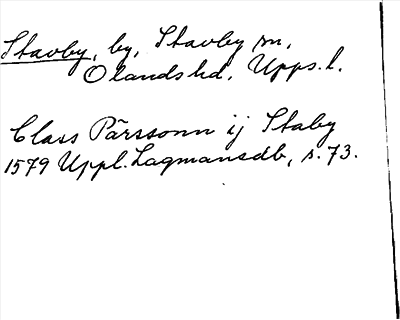 Stavby, by, Stavby sn,
Olands hd, Upps. l.
Class Pärssonn ij Staby
1579 Uppl. Lagmansdb, s. 73.